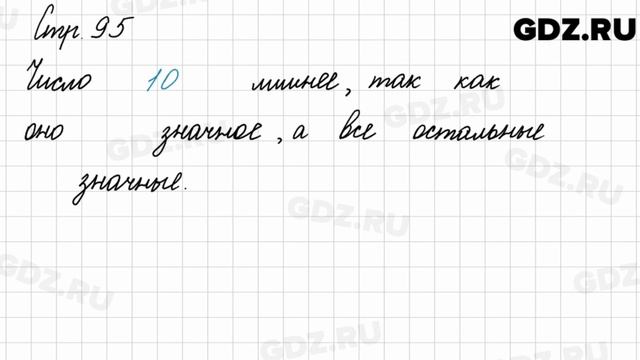 Стр. 95
GDZ.RU
Число 10 лишнее, так как
оно значное, а все остальные
значные.
GDZ.RU
GDZ.RU
GDZ.RU
GDZ.RU
GDZ.RU
GDZ.RU
GDZ.RU
GDZ.RU